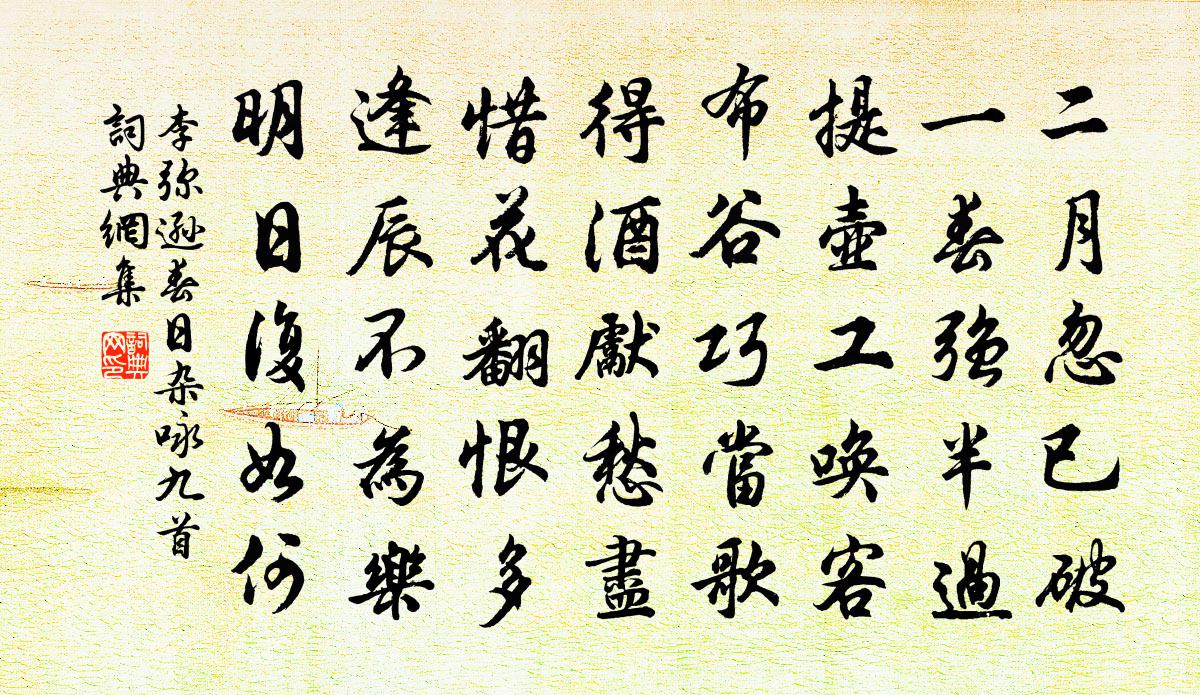 二月忽已破
一春強半過
提壺工喚客
布谷巧當歌
得酒獻愁盡
惜花翻恨多
逢辰不為樂
明日復如何
李弥遜春日杂咏九首
詞典網集
詞典
网印